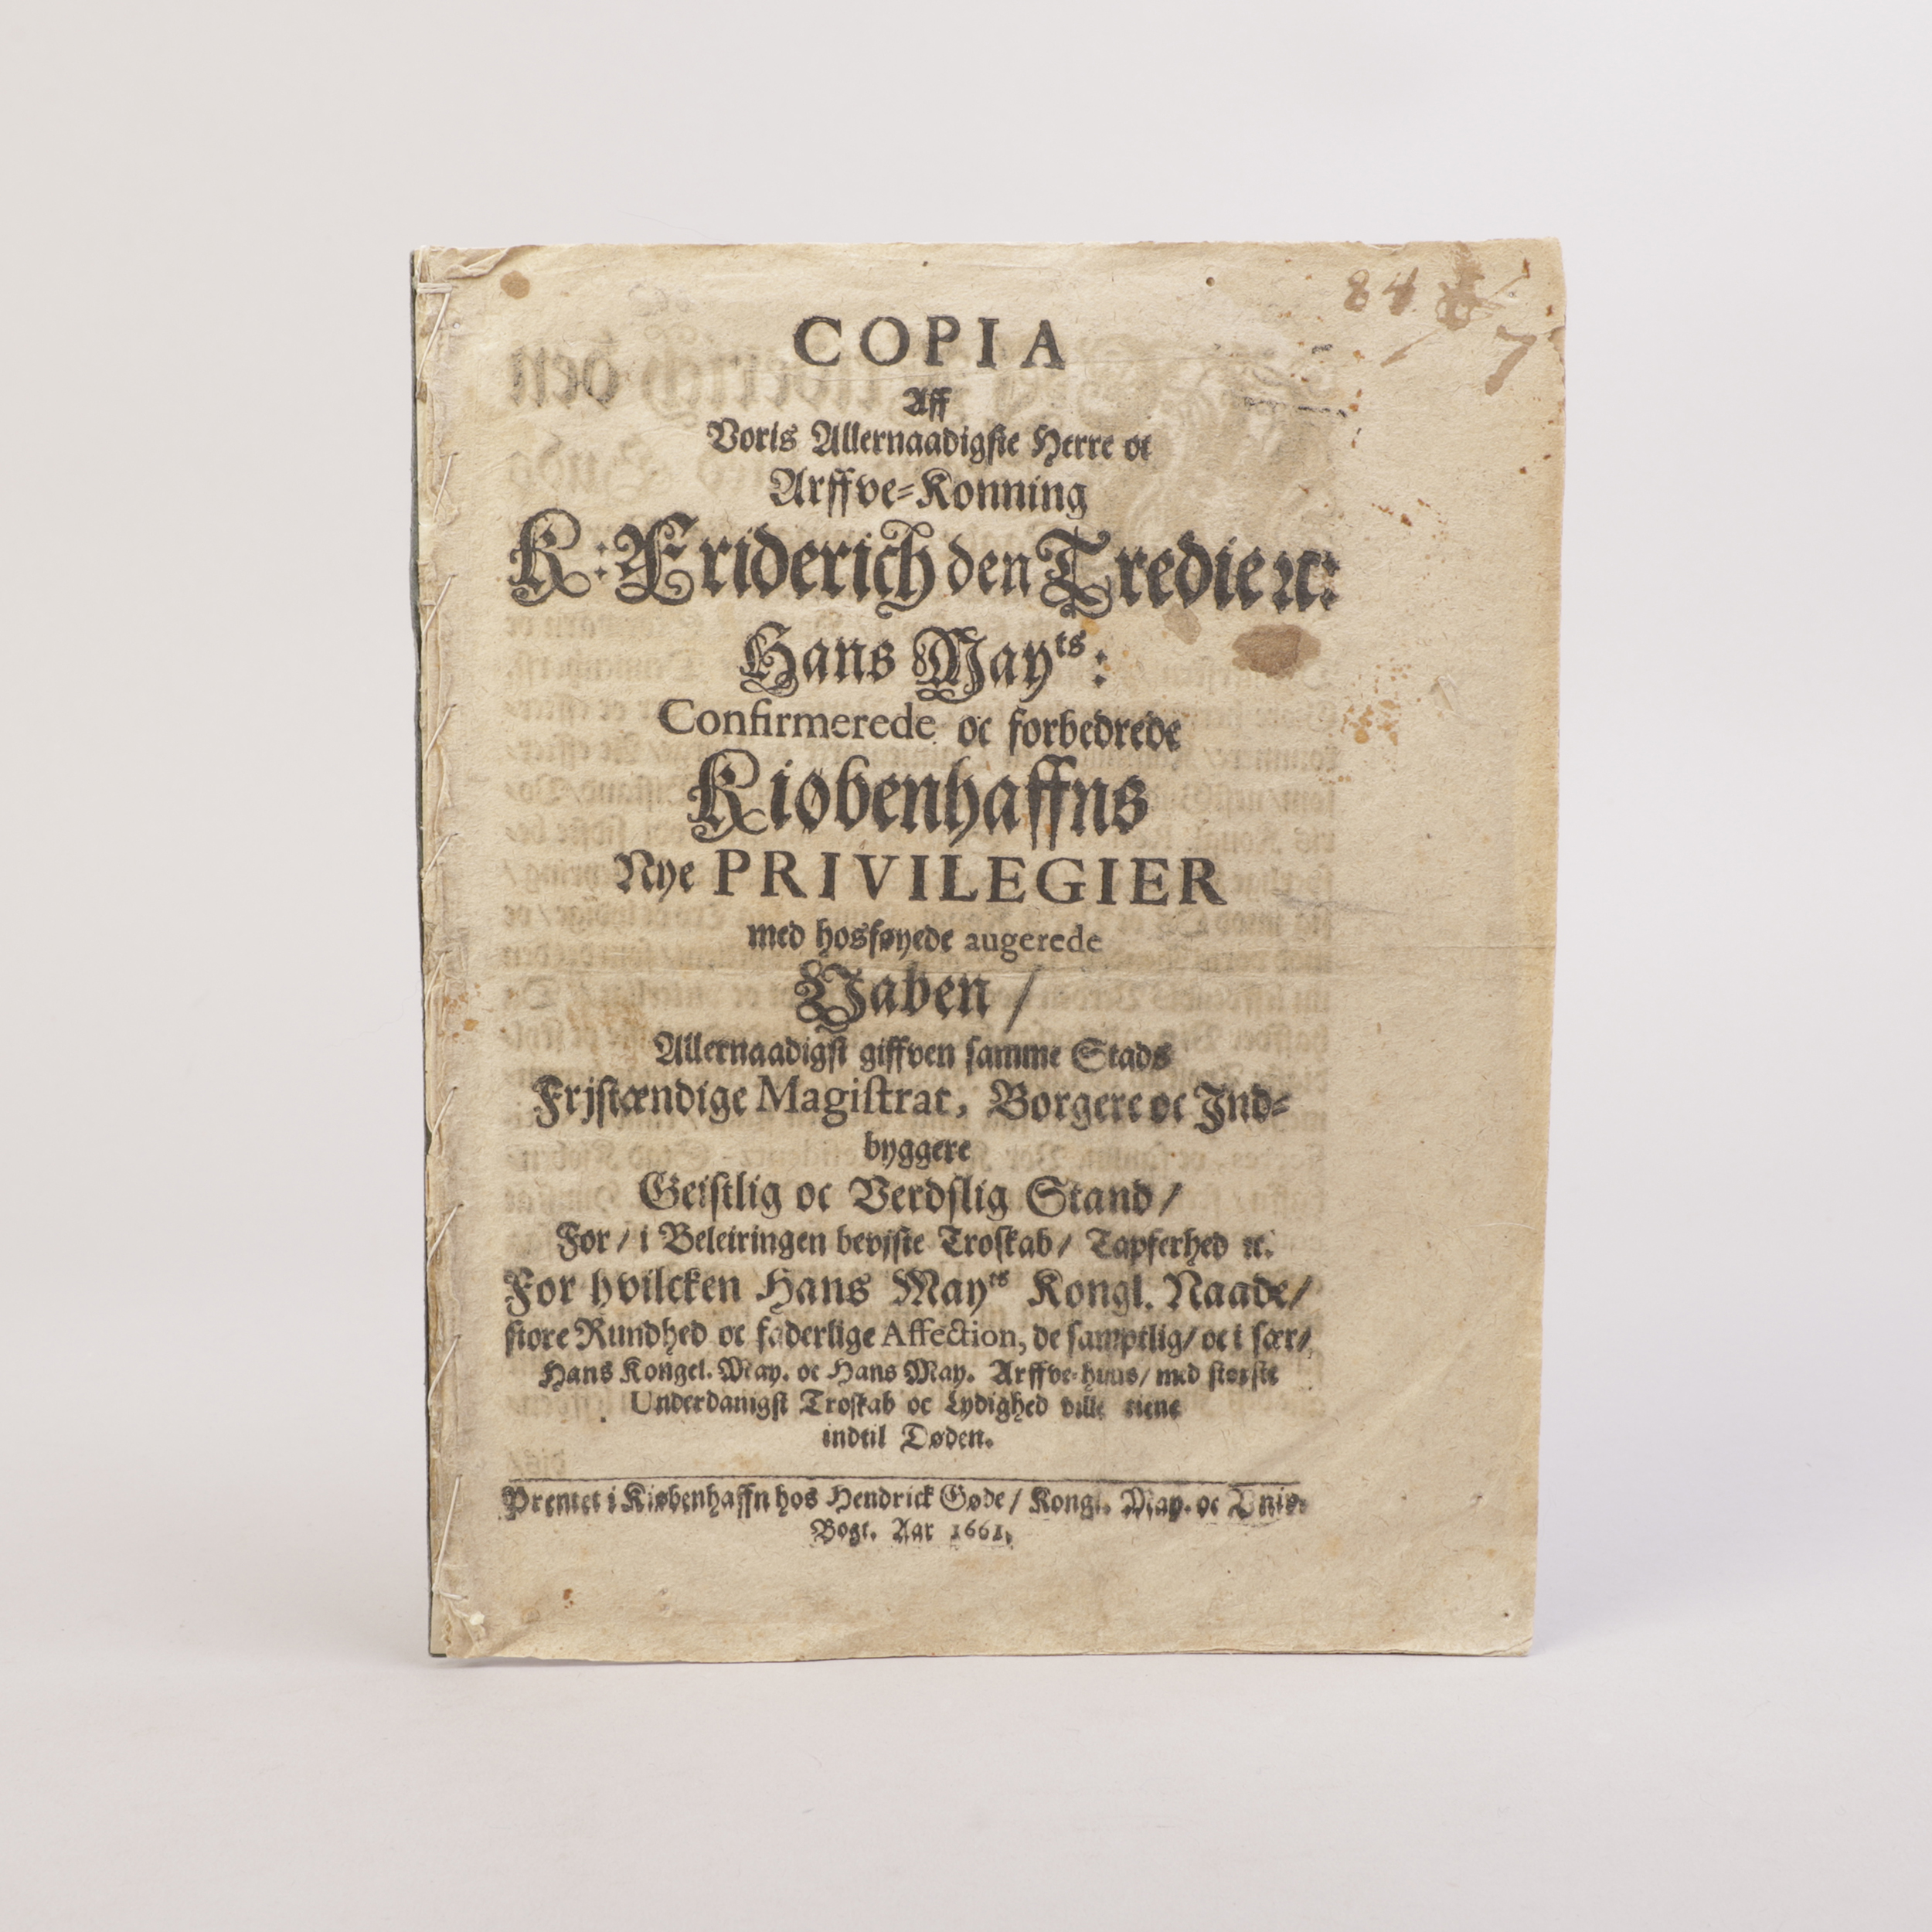 84
7
COPIA
Aff
Voris Allernaadigste Herre oc
Arffve-Konning
K: Friderich den Tredie ꝛc:
Hans Mayts:
Confirmerede oc forbedrede
Kiøbenhaffns
Nye PRIVILEGIER
med hosføyede augerede
Vaben /
Allernaadigst giffven samme Stads
Frjstændige Magistrat, Borgere oc Ind-
byggere
Geistlig oc Verdslig Stand /
For / i Beleiringen bevjste Troskab / Tapferhed ꝛc.
For hvilcken Hans Mayts Kongl. Naade /
store Rundhed oc faderlige Affection, de samptlig / oc i sær /
Hans Kongel. May. oc Hans May. Arffve-huus / med største
Underdanigst Troskab oc Lydighed ville tiene
indtil Døden.
Prentet i Kiøbenhaffn hos Hendrick Gøde / Kongl. May. oc Univ.
Bogt. Aar 1661.